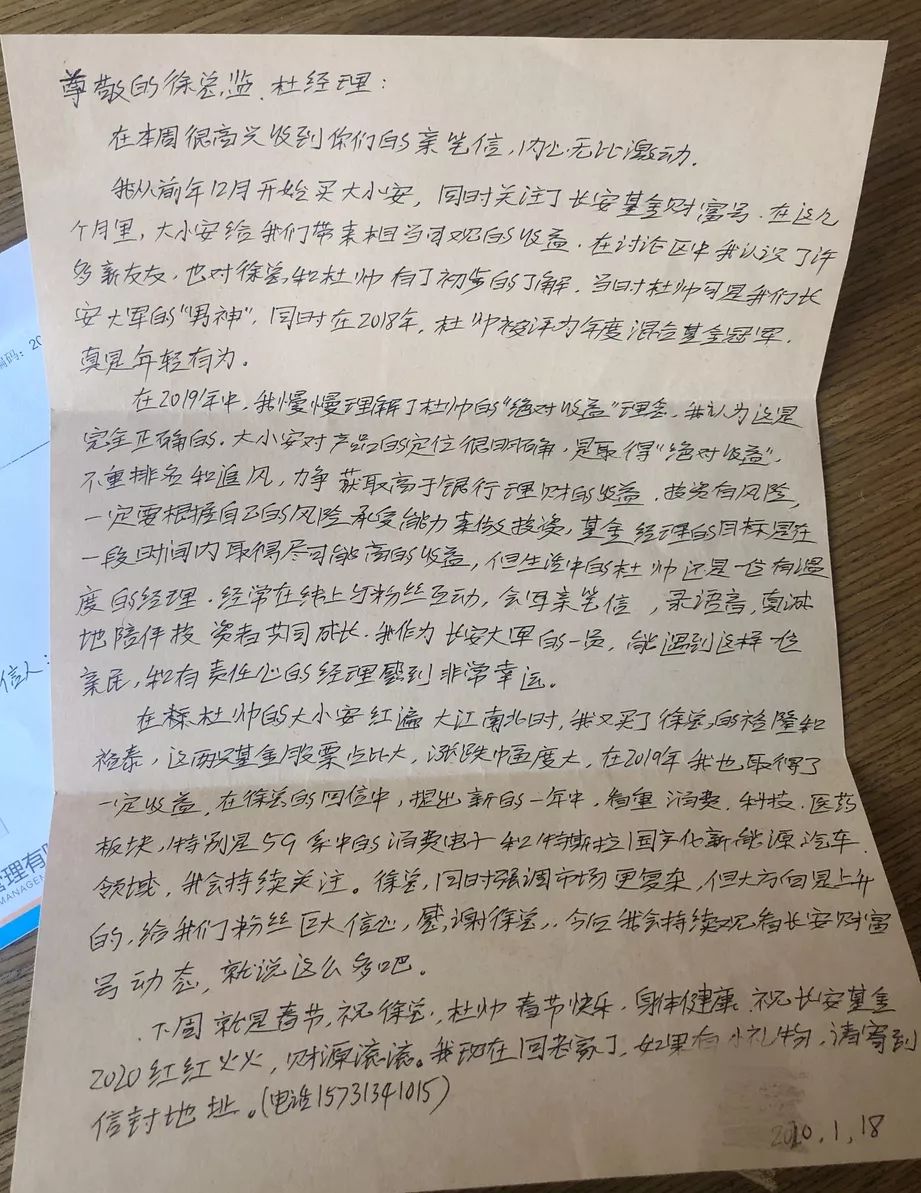 尊敬的徐总监、杜经理：
在本周很高兴收到你们的亲笔信，内心无比激动.
我从前年12月开始买大小安，同时关注了长安基金财富号.在这几
个月里，大小安给我们带来相当可观的收益.在讨论区中我认识了许
多新友友，也对徐总和杜帅有了初步的了解.当时杜帅可是我们长
安大军的“男神”，同时在2018年，杜帅被评为年度混合基金冠军.
真是年轻有为.
在2019年中，我慢慢理解了杜帅的“绝对收益”理念，我认为这是
完全正确的.大小安对产品的定位很明确，是取得“绝对收益”，
不重排名和追风，力争获取高于银行理财的收益.投资有风险，
一定要根据自己的风险承受能力来做投资，基金经理的目标是在
一段时间内取得尽可能高的收益，但生活中的杜帅还是一位有温
度的经理.经常在线上与粉丝互动，会写亲笔信，录语音，真诚
地陪伴投资者共同成长.我作为长安大军的一员，能遇到这样一位
亲民，和有责任心的经理感到非常幸运。
在杜帅的大小安红遍大江南北时，我又买了徐总的裕隆和
裕泰，这两只基金股票占比大，涨跌幅度大，在2019年我也取得了
一定收益.在徐总的回信中，提出新的一年中，看重消费.科技.医药
板块，特别是5G系中的消费电子和特斯拉国产化新能源汽车
领域，我会持续关注。徐总，同时强调市场更复杂，但大方向是上升
的，给我们粉丝巨大信心，感谢徐总，.今后我会持续观看长安财富
号动态，就说这么多吧。
下周就是春节，祝徐总，杜帅春节快乐.身体健康.祝长安基金
2020红红火火，财源滚滚。我现在回老家了，如果有小礼物，请寄到
信封地址。(电话15731341015)
2020.1.18
编码：20
信人：
管理有限
MANAGEM